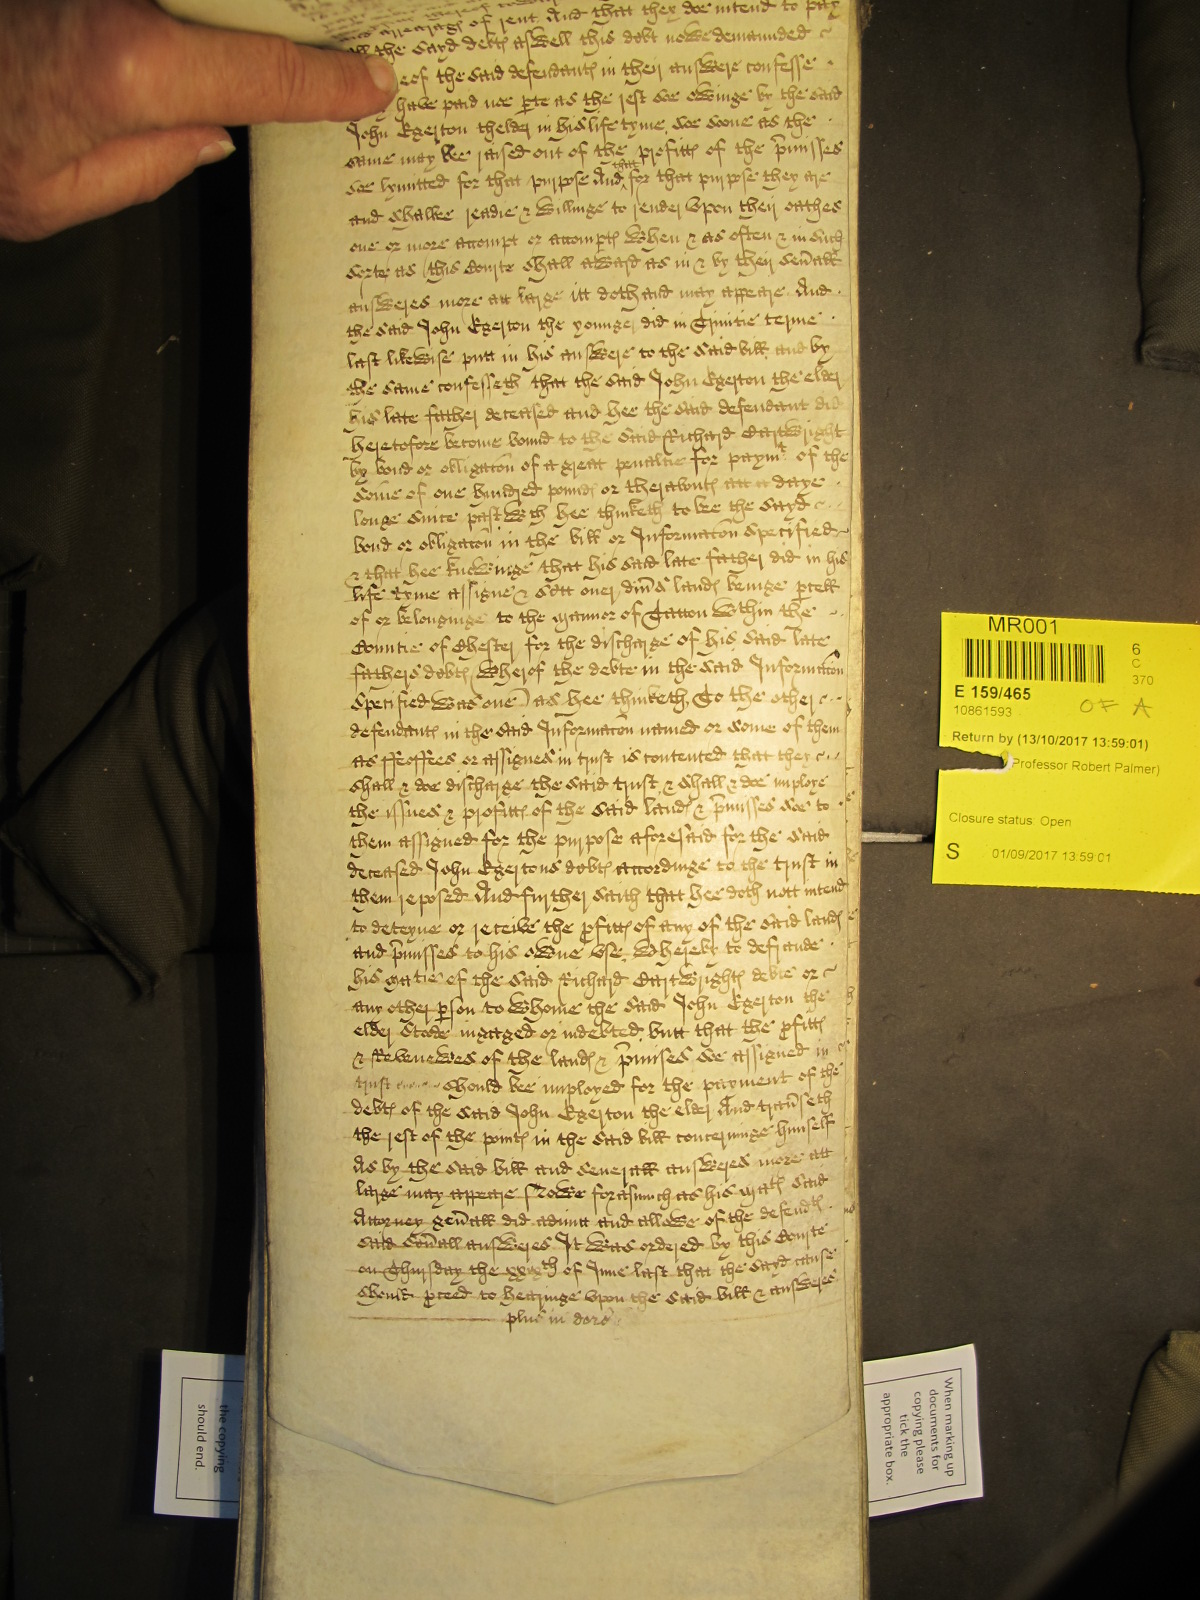 arrearages of rent And that they doe intend to pay
all the sayd debtꝭ aswell this debt nowe demaunded
eof the said defendantꝭ in their answere confesse
have paid noe ꝑte as the rest soe oweinge by the said
John Egerton thelder in his life tyme, soe soone as the
same may bee raised out of the profittꝭ of the p̃misses
soe lymitted for that purpose And that for that purpose they are
and shalbe readie & willinge to render vpon their oathes
one or more accompt or accomptꝭ when & as often & in such
sorte as this Courte shall award as in & by their seu̾all
answeres more att large itt doth and may appeare. And
the said John Egerton the younger did in Trinitie terme
last likewise putt in his answere to the said bill, and by
the same confesseth that the said John Egerton the elder
his late father deceased and hee the said defendant did
heretofore become bound to the said Richard Cartwright
by bond or obligac̃on of a great penaltie for paymt of the
some of one hundred poundꝭ or theraboutꝭ att a daye
longe since past wch hee thinketh to bee the sayd
bond or obligac̃on in the bill or Informac̃on specified
& that hee knoweinge that his said late father did in his
life tyme assigne & sett over div̾s landꝭ beinge ꝑcell
of or belonginge to the mannor of Tatton wthin the
Countie of Chester for the discharge of his said late
fathers debtꝭ (wherof the debte in the said Informac̃on
specified was one) as hee thinketh To the other
defendantꝭ in the said Informac̃on named or some of them
as ffeoffees or assignes in trust is contented that they
shall & doe discharge the said trust, & shall & doe imploye
the issues & profittꝭ of the said landꝭ & p̃misses soe to
them assigned for the purpose aforesaid for the said
deceased John Egertons debtꝭ accordinge to the trust in
them reposed And further saith that hee doth nott intend
to deteyne or receive the ꝓfittꝭ of any of the said landꝭ
and p̃misses to his owne vse, whereby to defraude
his matie of the said Richard Cartwrightꝭ debte or
any other ꝑson to whome the said John Egerton the
elder stoode ingaged or indebted, butt that the ꝓfittꝭ
& Revenewes of the landꝭ & p̃misses soe assigned in
trust should bee imployed for the payment of the
debtꝭ of the said John Egerton the elder And trav̾seth
the rest of the pointꝭ in the said bill concerninge himself
As by the said bill and severall answeres more att
large may appeare Nowe forasmuch as his matꝭ said
Attorney gen̾all did admitt and allowe of the defendtꝭ
said seu̾all answeres It was ordered by this Courte
on Thursday the xxixth of June last that the sayd cause
should ꝓceed to hearinge vpon the said bill & answeres
plus in dorso
MR001
6
C
370
E 159/465
10861593
OF A
Return by (13/10/2017 13:59:01)
Professor Robert Palmer)
Closure status Open
S 01/09/2017 13:59:01
the copying
should end.
When marking up
documents for
copying please
tick the
appropriate box.